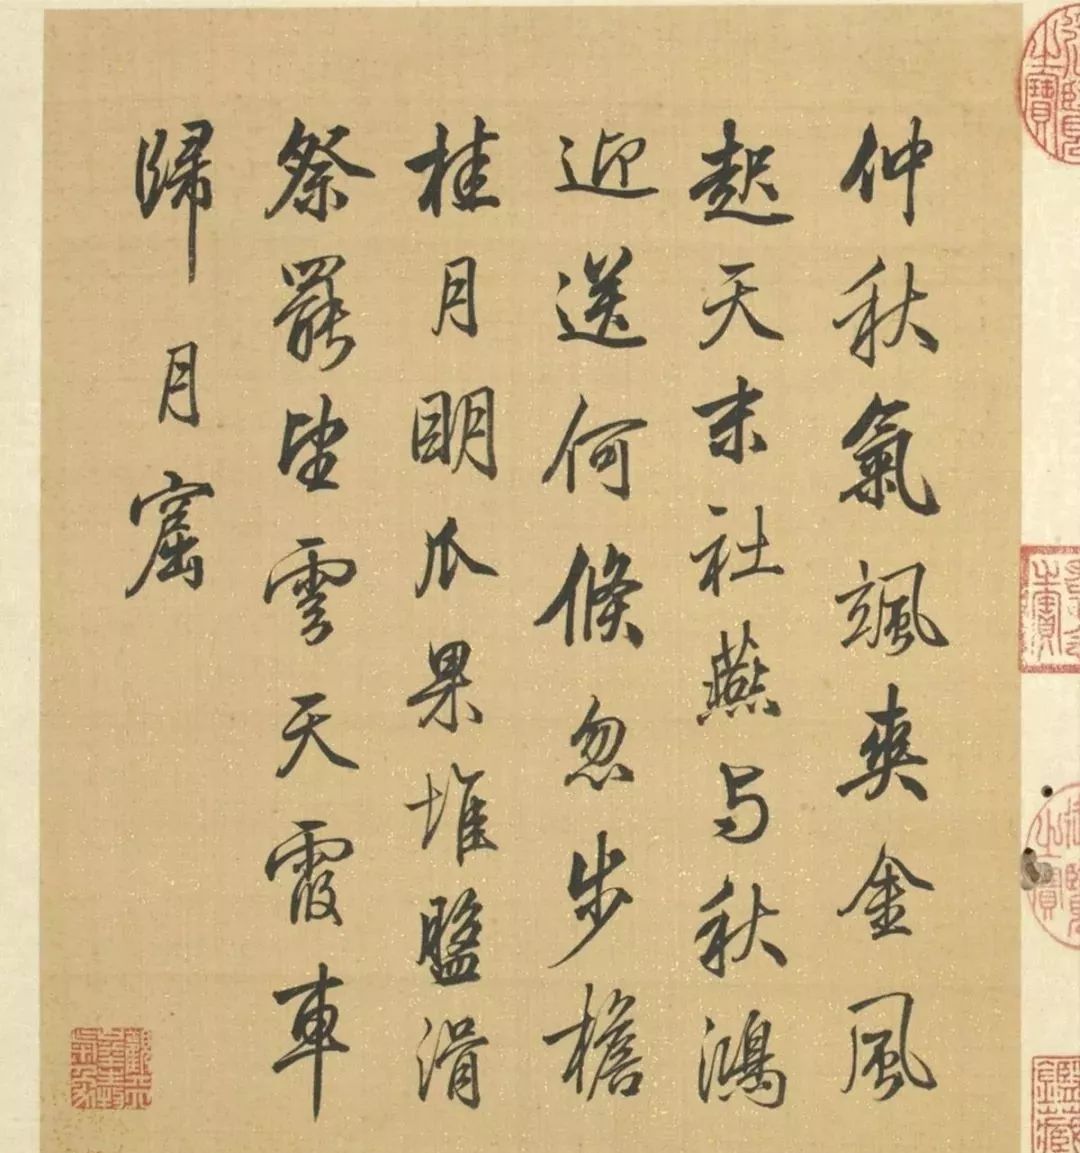 仲秋氣颯爽金風
起天末社燕与秋鴻
迎送何倏忽步檐
桂月明瓜果堆盤滑
祭罷望雲天霞車
歸月窟